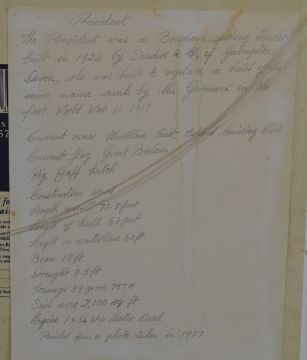 Provident
The Provident was a Brixham fishing trawler
built in 1924 by Sanders & Co, of Galmpton
Devon, she was built to replace a
same name sunk by the Germans in the
first World War in 1917
Current owner Maritime Trust, Island Cruising Club
Current flag Great Britain
Rig Gaff Ketch
Construction Wood
Length overall 70.5 feet
Length of hull 63 feet
Length on waterline 60ft
Beam 18 ft
Draught 9.5 ft
Tonnage 39 gross
Sail area 2,100 sq ft
Engine 1 x 54 bhp Lister diesel
Painted from a photo taken in 1977